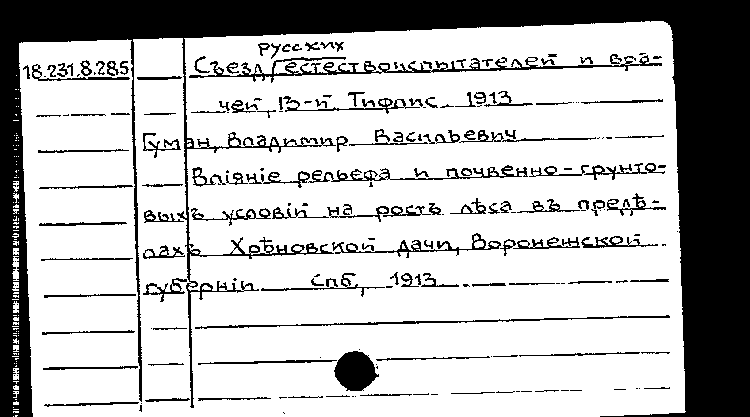 русских
18.231.8.285 Съезд естествоиспытателей и вра-
чей, 13-й. Тифлис. 1913
Гуман, Владимир Васильевич
Влiянiе рельефа и почвенно-грунто-
выхъ условiй на ростъ лѣса въ предѣ-
лахъ Хрѣновской дачи, Воронежской
губернiи. Спб., 1913.